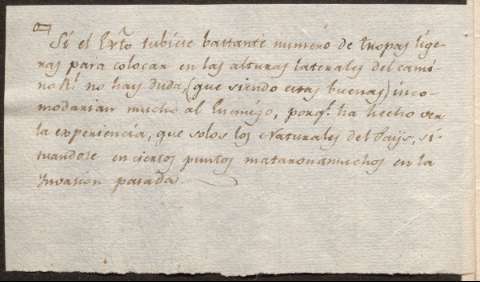 Si el Exto tubiese bastante numero de tropas lige-
ras para colocar en las alturas laterales del cami-
no Rl. no hay duda, (que siendo estas buenas) inco-
modarian mucho al Enemigo, porq.e ha hecho ver
la experiencia, que solos los Naturales del Paiis, si-
tuandose en ciertos puntos mataron á muchos en la
Invasion pasada.